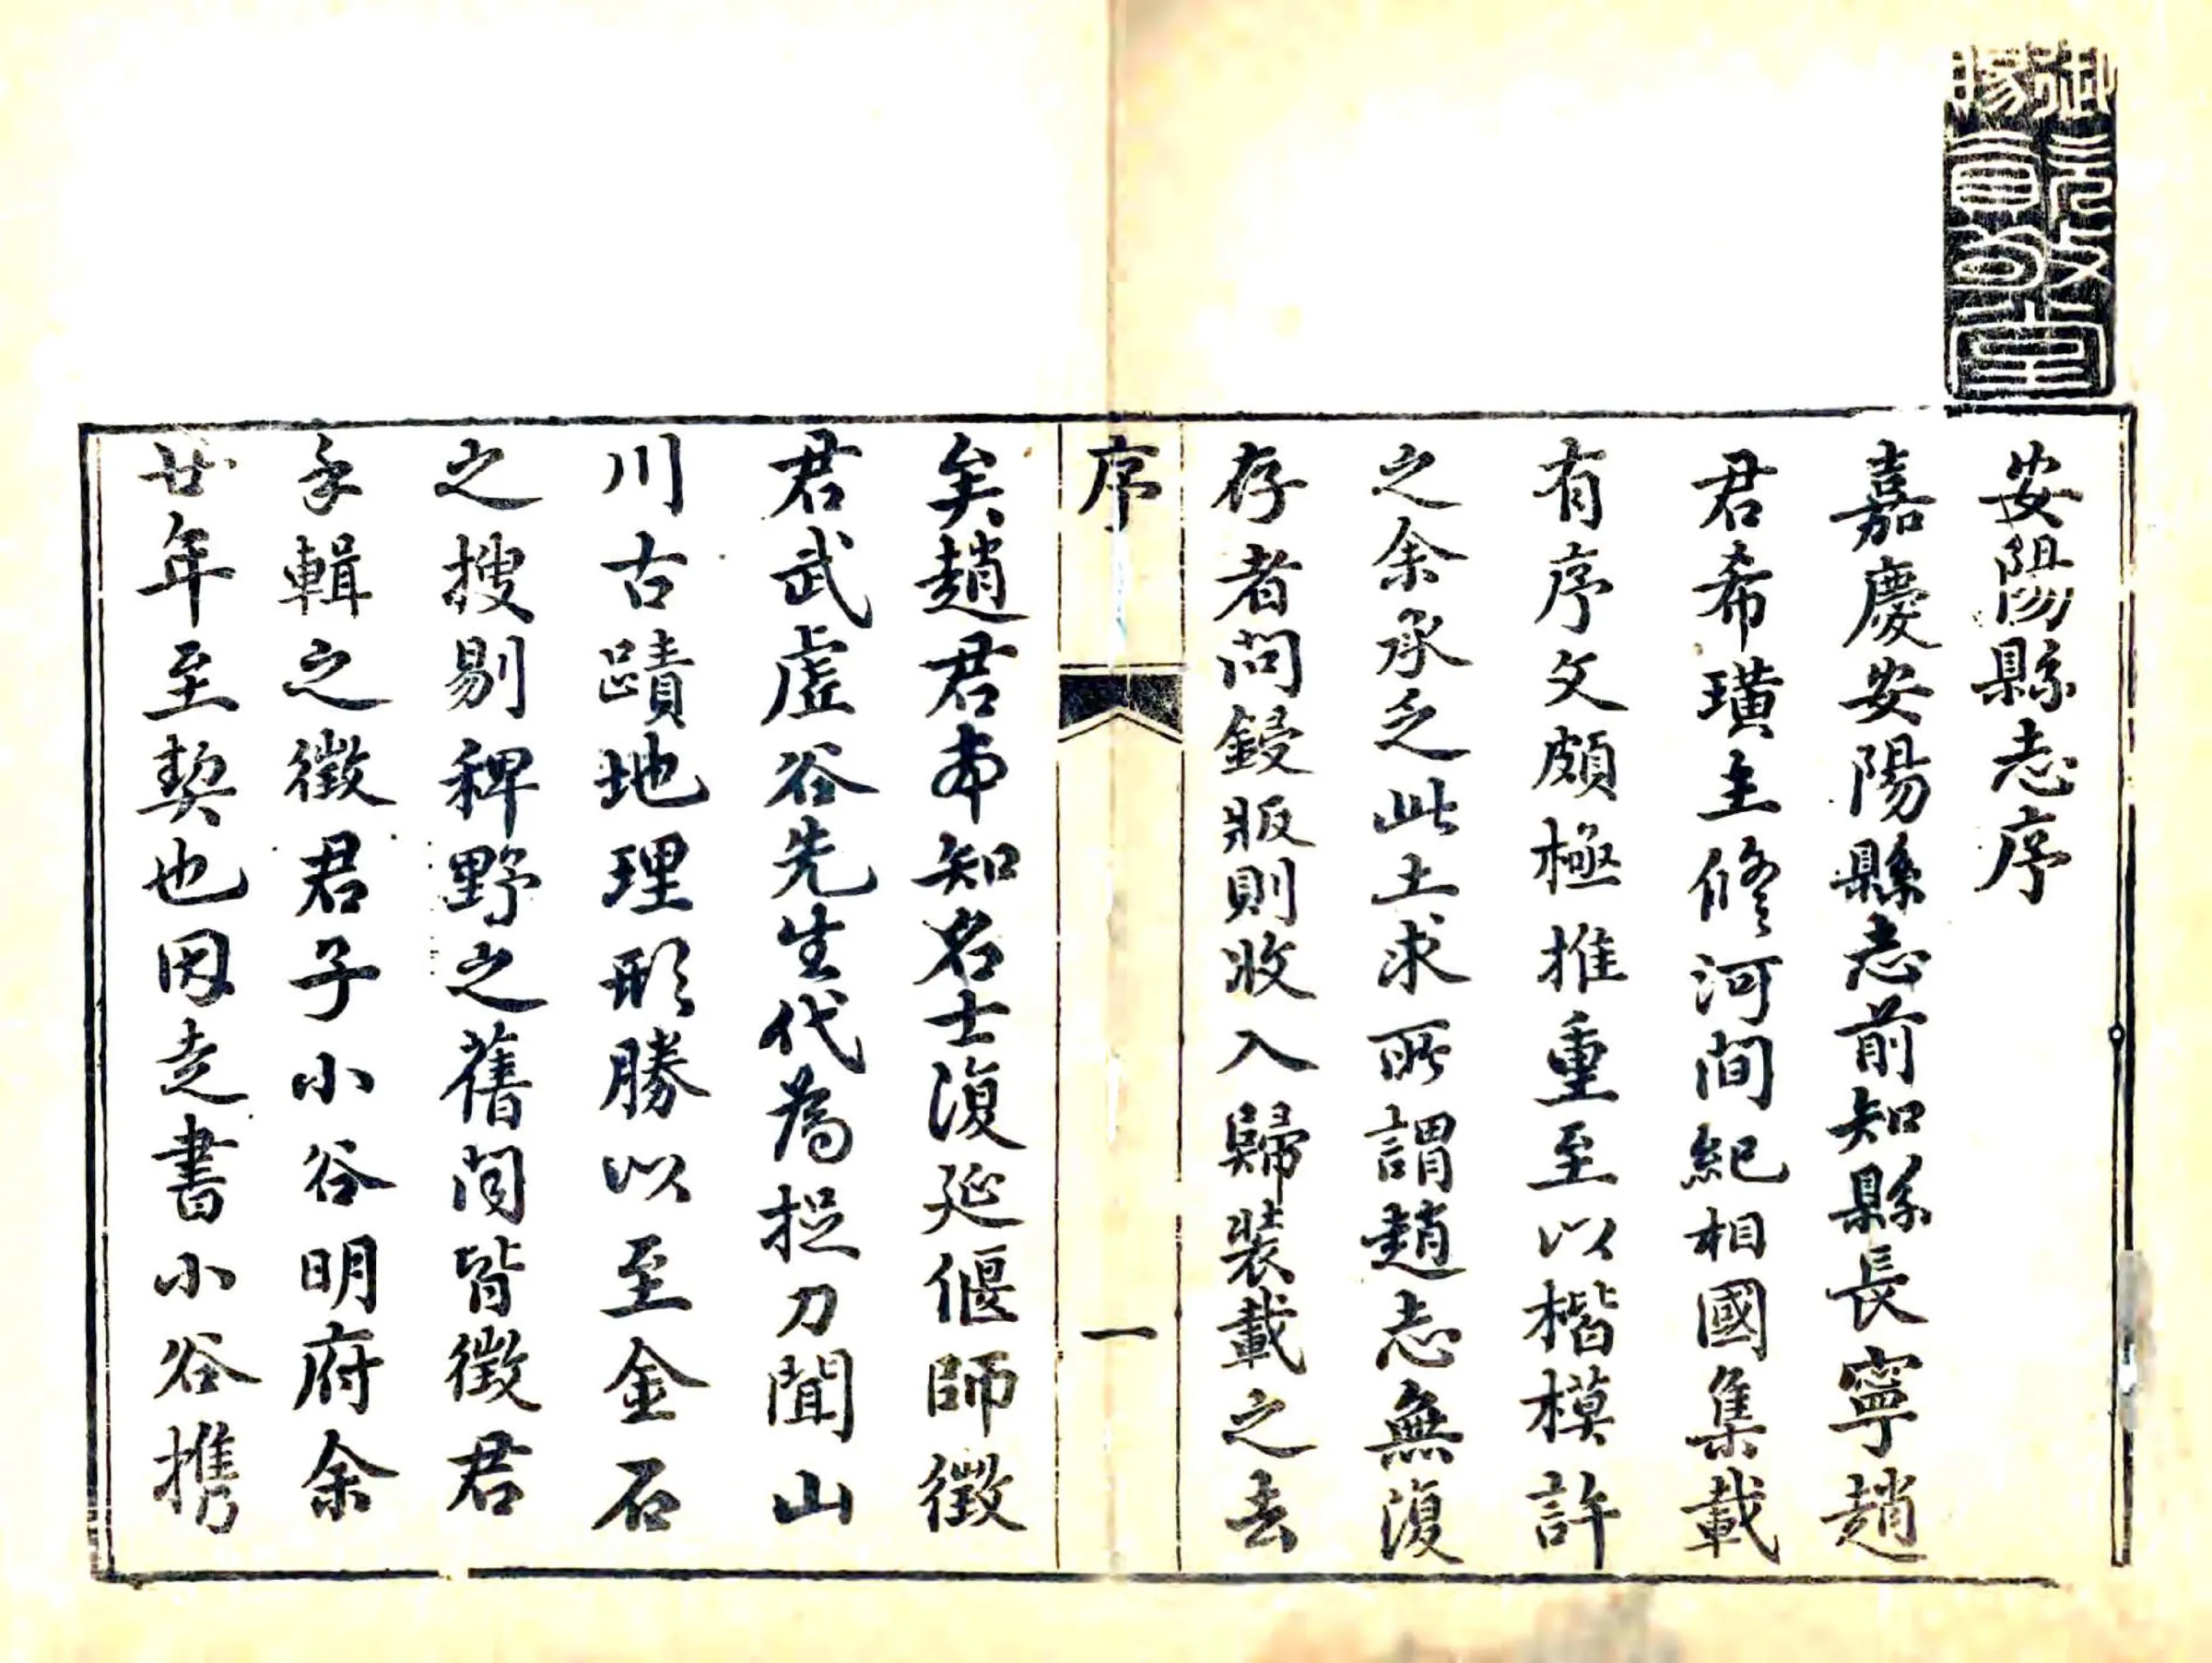 安陽縣志序
嘉慶安陽縣志前知縣長寧趙
君希璜主修河間紀相國集載
有序文頗極推重至以楷模許
之余承乏此土求所謂趙志無復
存者問鋟版則收入歸裝載之去
序
一
矣趙君本知名士復延偃師徵
君武虛谷先生代為捉刀聞山
川古蹟地理形勝以至金石
之搜剔稗野之舊聞皆徵君
手輯之徵君子小谷明府余
廿年至契也因走書小谷攜